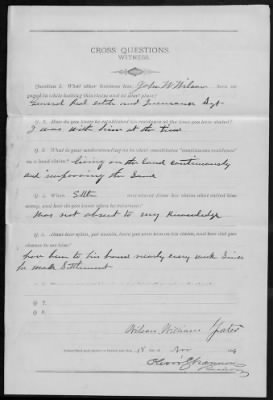 CROSS QUESTIONS.
WITNESS.
Question 1. What other business has John W Wilson been en-
gaged in while holding this claim and at what place?
General Real estate and Insurance Agt
Q. 2. How do you know he established his residence at the time you have stated?
I was with him at the time
Q. 3. What do you understand to be
a land claim? living on the land continuously
and improving the Same
Q. 4. When Settler was absent from his claim what called him
away, and how do you know when he returned?
Was not absent to my Knowledge
Q. 5. How often, per month, have you seen him on his claim, and how did you
chance to see him?
have been to his house nearly every week Since
he made Settlement
Q. 7.
Q. 8.
Wilson Williams
18 day of Nov